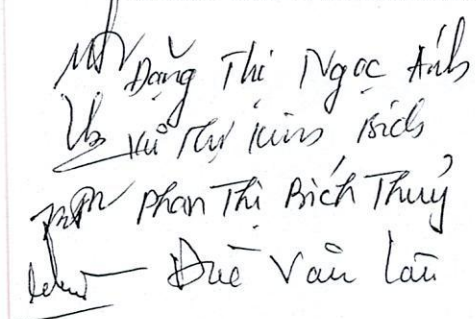 Đặng Thị Ngọc Ánh
Vũ Thị Kim Bích
Phan Thị Bích Thuỷ
Văn